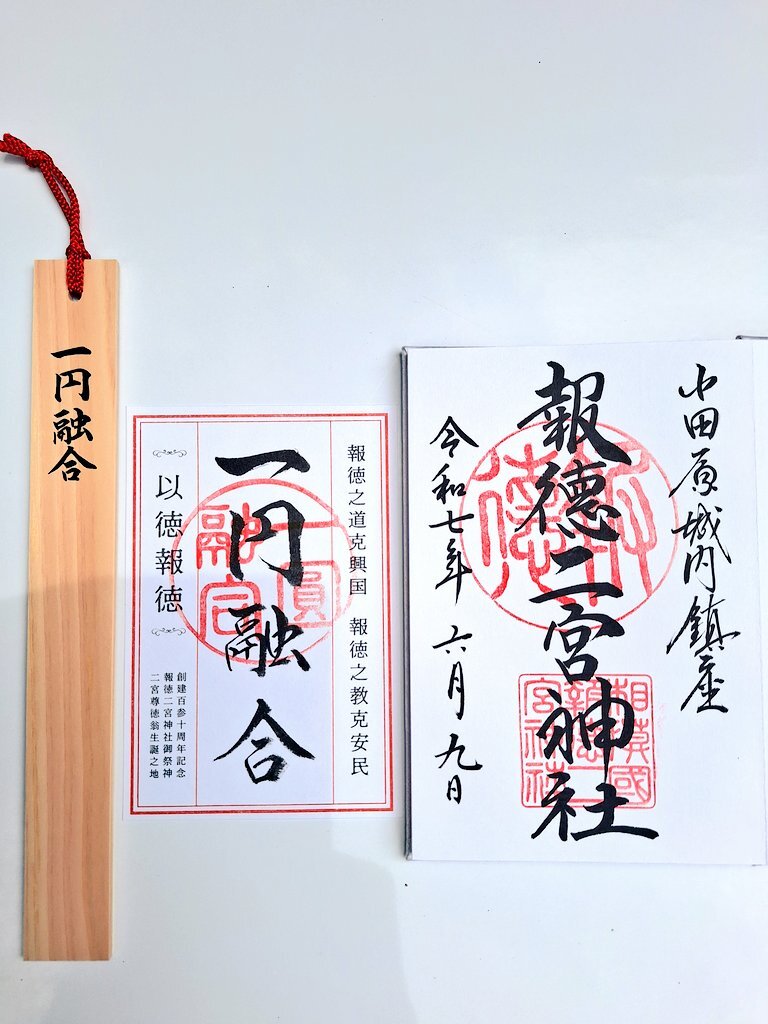 一円融合
報徳之道克興国 報徳之教克安民
一円融合
一圓融合
以徳報徳
創建百参十周年記念
報徳二宮神社御祭神
二宮尊徳翁生誕之地
小田原城内鎮座
報徳二宮神社
相模國
報徳二
宮神社
令和七年 六月九日